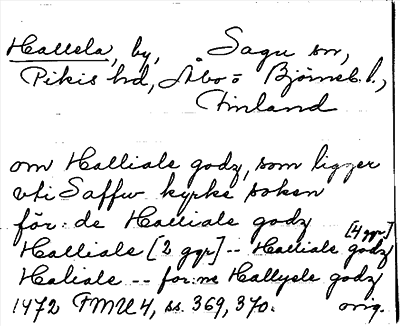 Hallela, by, Sagu sn,
Pikis hd, Åbo= Björneb. l.,
Finland
om Halliale godz, som ligger
vti Saffw kyrke soken
för: de Halliale godz
Halliale [2 ggr] -- Halliale godz [4 ggr.]
Haliale -- for:ne Hallysle godz
1472 FMU 4, ss. 369, 370. orig.